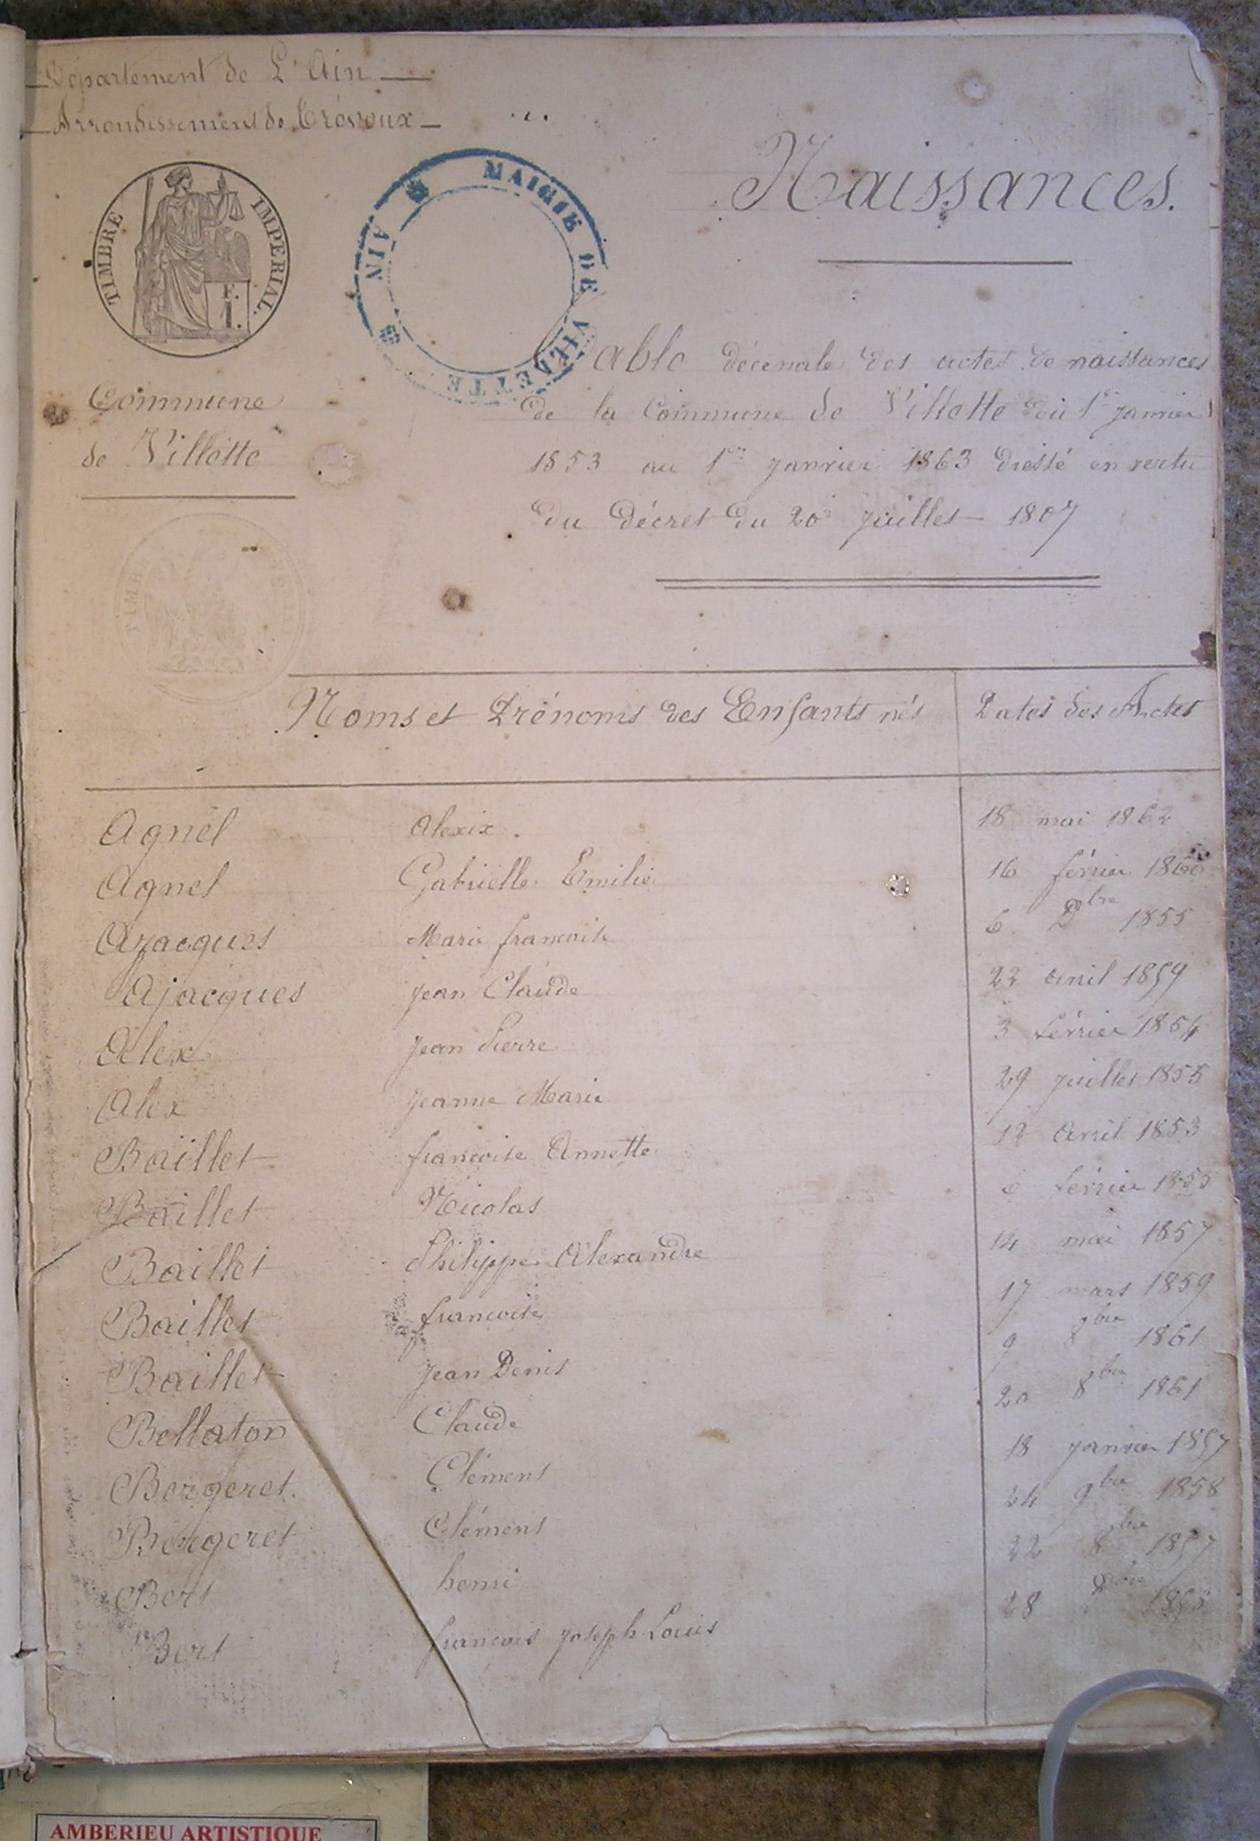 Département de L'Ain
Arrondissement de Trévoux
TIMBRE IMPERIAL
F.
1.
MAIRIE DE VILLETTE
AIN
Naissances.
Commune
de Villette
Table décenale des actes de naissances
de la Commune de Villette du 1er janvier
1853 au 1er janvier 1863 dressé en vertu
du décret du 20 juillet 1807
Noms et Prénoms des Enfants nés Dates des Actes
Agnel Alexix. 18 mai 1862
Agnel Gabrielle Emilie 16 février 1860
Ajacques Marie françoise 6 Dbre 1855
Ajacques Jean Claude 22 avril 1859
Alex Jean Pierre 3 février 1854
Alex Jeanne Marie 29 juillet 1855
Baillet françoise Annette 12 avril 1853
Baillet Nicolas février
Baillet Philippe Alexandre 14 mai 1857
Baillet françoise 17 mars 1859
Baillet Jean Denis 9 8bre 1861
Bellaton Claude 20 8bre 1861
Bergeret. Clément 18 janvier 1857
Bergeret Clément 24 9bre 1858
Bert henri 22 8bre 1857
Bert françois joseph Louis 28
AMBERIEU ARTISTIQUE